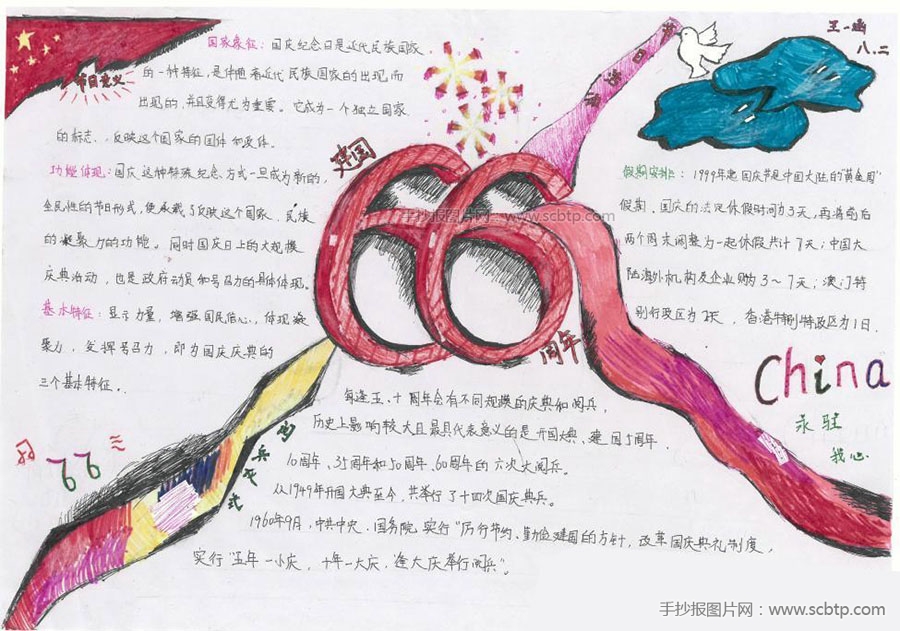 王一涵
八.二
节日意义
国家象征：国庆纪念日是近代民族国家
的一种特征，是伴随着近代民族国家的出现而
出现的，并且变得尤为重要。它成为一个独立国家
的标志，反映这个国家的国体和政体。
功能体现：国庆这种特殊纪念方式一旦成为新的，
全民性的节日形式，便承载了反映这个国家、民族
的凝聚力的功能。同时国庆日上的大规模
庆典活动，也是政府动员和号召力的具体体现。
基本特征：显示力量，增强国民信心，体现凝
聚力，发挥号召力，即为国庆庆典的
三个基本特征。
建国
66
周年
手抄报图片网：www.scbtp.com
假期安排：1999年起国庆节是中国大陆的"黄金周"
假期。国庆的法定休假时间为3天，再将前后
两个周末调整为一起休假共计7天；中国大
陆海外机构及企业购3～7天；澳门特
别行政区为2天，香港特别特政区为1日.
China
永驻
我心
66
阅兵仪式
每逢五、十周年会有不同规模的庆典和阅兵，
历史上影响较大且最具代表意义的是开国大典、建国5周年.
10周年、35周年和50周年、60周年的六次大阅兵。
从1949年开国大典至今，共举行了十四次国庆典兵。
1960年9月，中共中央、国务院实行"厉行节约、勤俭建国的方针，改革国庆典礼制度，
实行"五年一小庆，十年一大庆，逢大庆举行阅兵"。
手抄报图片网：www.scbtp.com